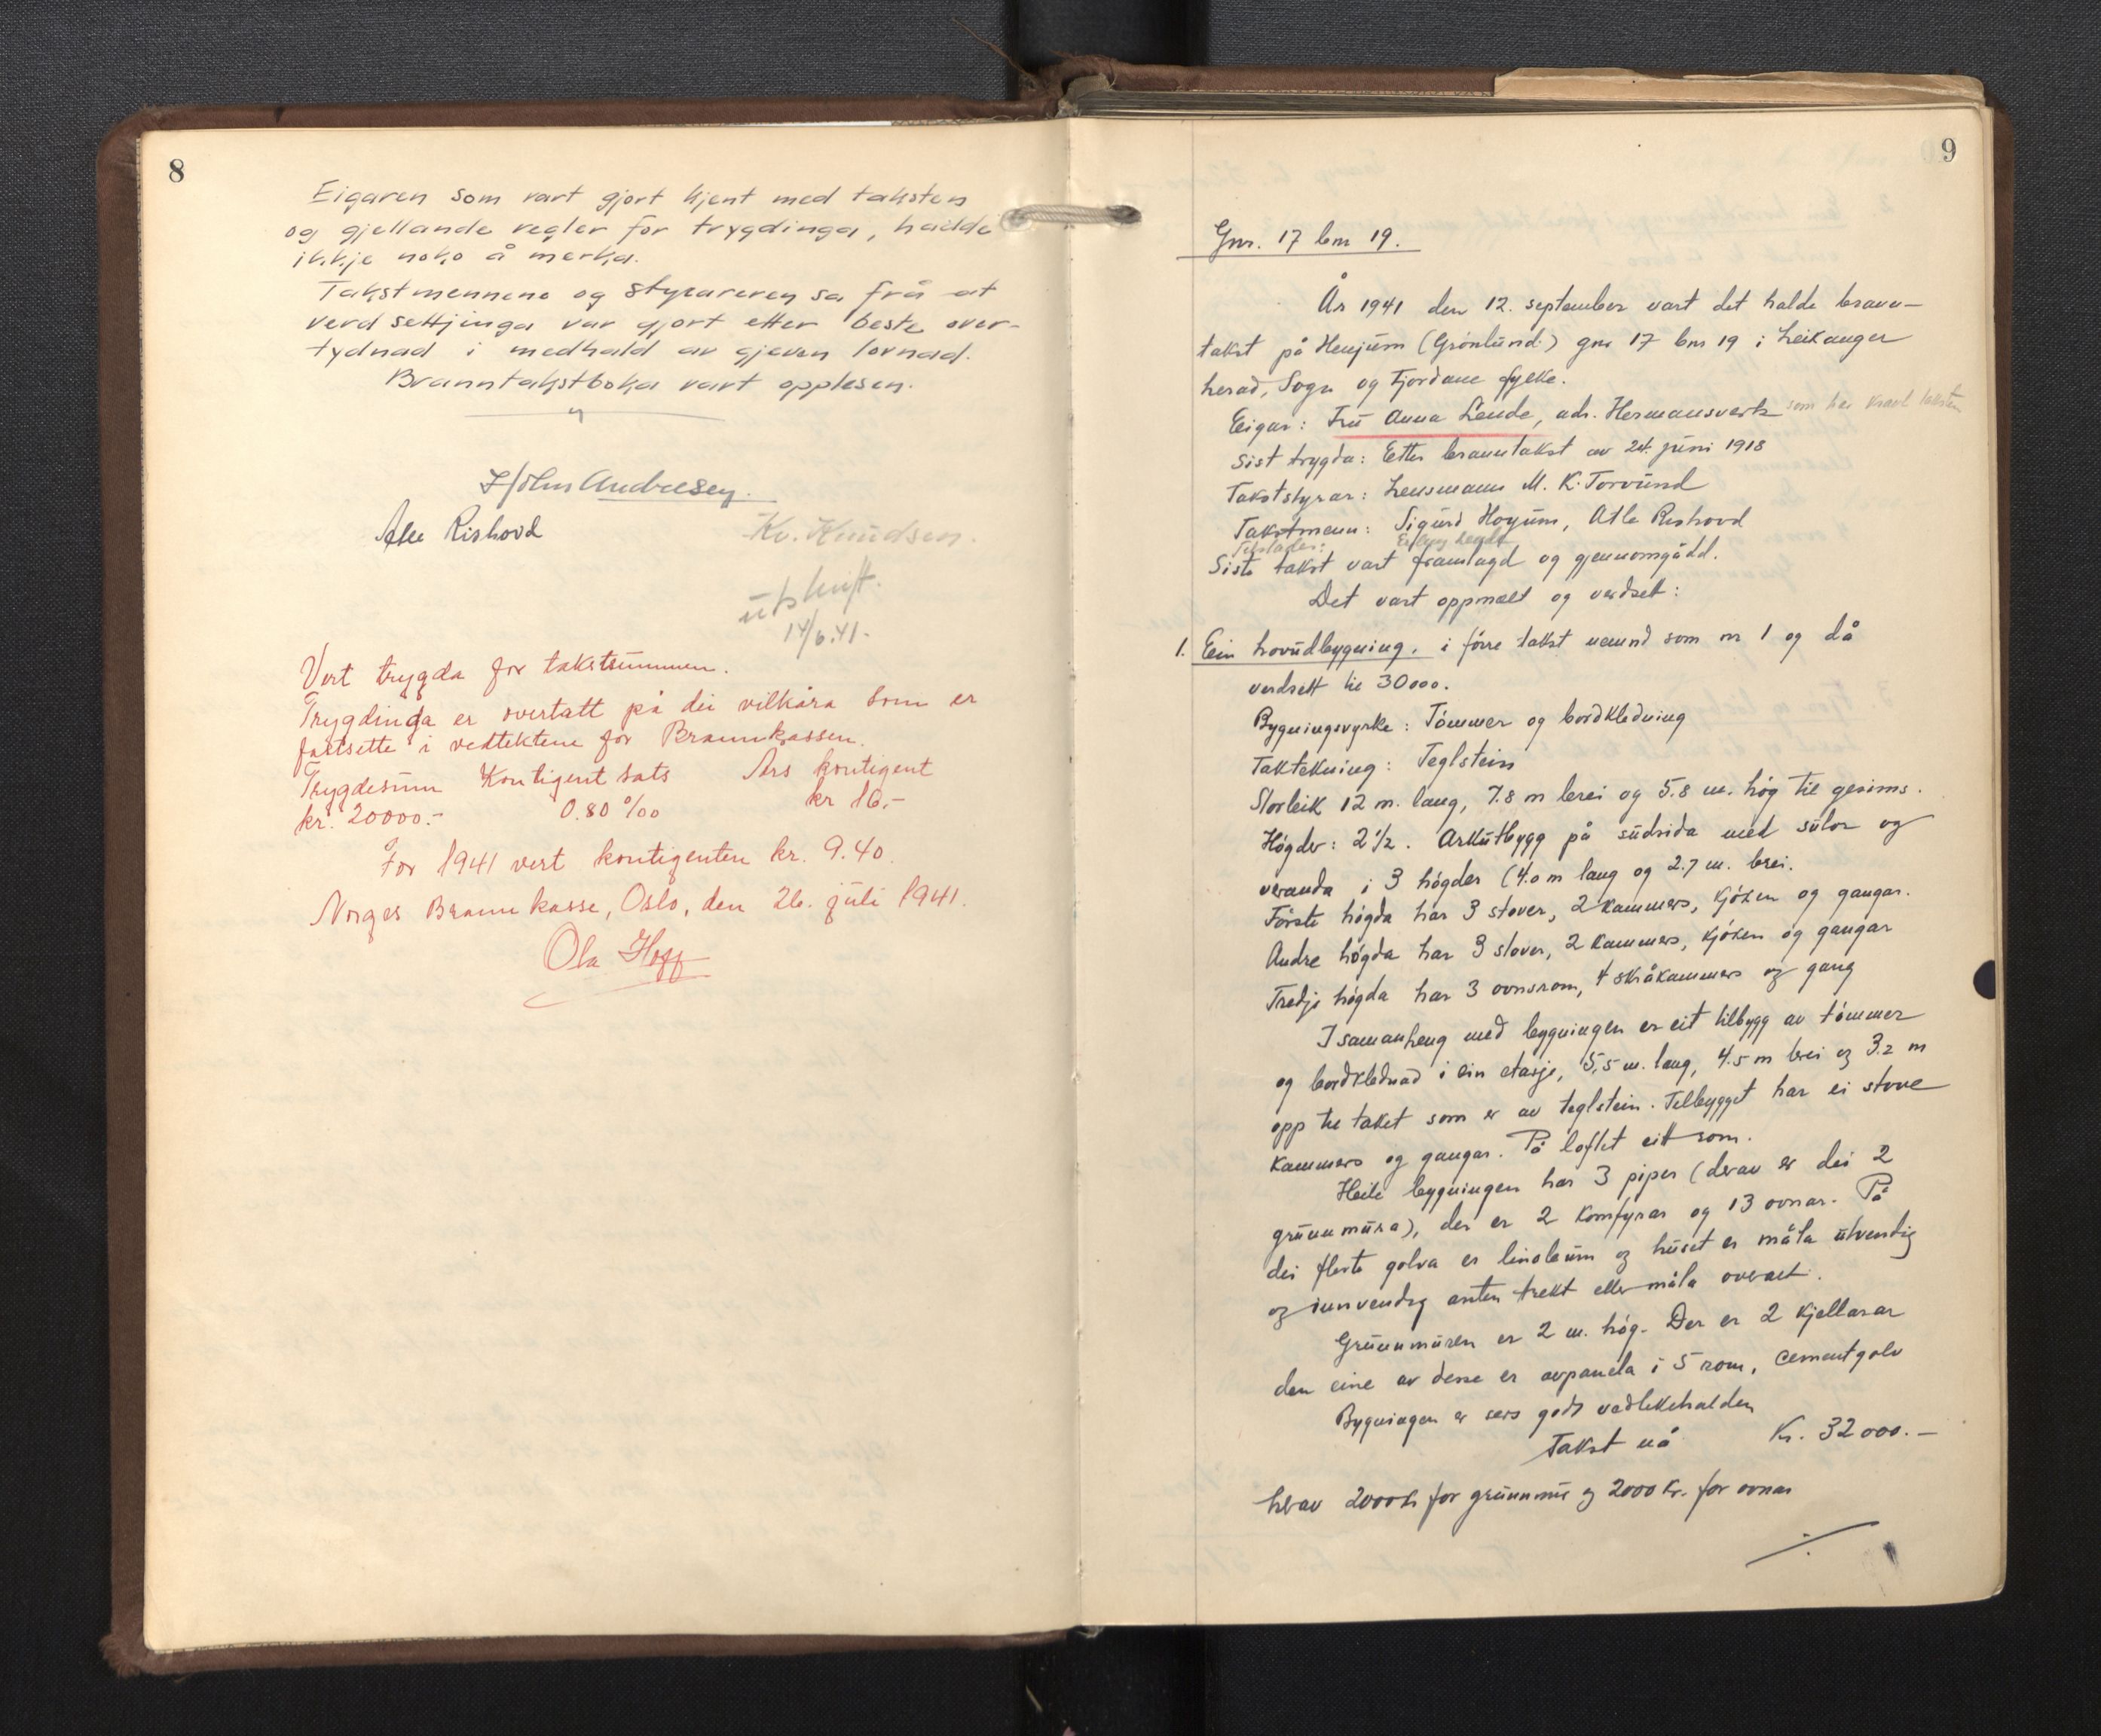 8
Eigaren som vart gjort kjent med taksten
og gjellande regler for trygdinga, hadde
ikkje noko å merka.
Takstmennene og styraren sa frå at
verdsettjinga var gjort etter beste over-
tydnad i medhald av gjeven lovnad.
Branntakstboka vart opplesen.
Hjolm Andresen.
Atle Rishovd
Kr. Knudsen.
utskrift.
14/6.41.
Vert trygda for takstsummen.
Trygdinga er overtatt på dei vilkåra som er
fastsette i vedtektene for Brannkassen.
Trygdesum Kontigent sats Års kontigent
kr. 20000.- 0.80 ‰ kr 16.-
For 1941 vert kontigenten kr. 9.40.
Norges Brannkasse, Oslo, den 26. juli 1941.
Ola Hoff
9
Gnr. 17 bnr 19.
År 1941 den 12. september vart det halde brann-
takst på Henjum (Grönlund) gnr 17 bnr 19 i Leikanger
herad, Sogn og Fjordane fylke.
Eigar: Fru Anna Lende, adr. Hermansverk som har kravt taksten
Sist trygda: Etter branntakst av 24. juni 1918
Takststyrar: Lensmann M. K. Torvund
Takstmenn: Sigurd Hoyum, Atle Rishovd
Tilstades: Erling Lende
Siste takst vart framlagd og gjennomgådd.
Det vart oppmålt og verdsett:
1. Ein hovudbygning, i förre takst nemnd som nr 1 og då
verdsett til 30000.
Bygningsvyrke: Tömmer og bordkledning
Taktekning: Teglstein
Storleik 12 m. lang, 7.8 m brei og 5.8 m. hög til gesims.
Högder: 2 1/2. Arkutbygg på sudsida med sulor og
veranda i 3 högder (4.0 m lang og 2.7 m. brei.
Förste högda har 3 stover, 2 kammers, kjöken og gangar.
Andre högda har 3 stover, 2 kammers, kjöken og gangar
Tredje högda har 3 ovnsrom, 4 skråkammers og gang
I samanheng med bygningen er eit tilbygg av tömmer
og bordklednad i ein etasje, 5,5 m. lang, 4.5 m brei og 3.2 m
opp til taket som er av teglstein. Tilbygget har ei stove
kammers og gangar. På loftet eit rom.
Heile bygningen har 3 piper (derav er dei 2
grunnmura), der er 2 komfyrar og 13 ovnar. På
dei fleste golva er linoleum og huset er måla utvendig
og innvendig anten trekt eller måla overalt.
Grunnmuren er 2 m. hög. Der er 2 kjellarar
den eine av desse er avpanela i 5 rom, cementgolv
Bygningen er sers godt vedlikehalden
Takst nå Kr. 32000.-
herav 2000 kr for grunnmur og 2000 kr. for ovnar